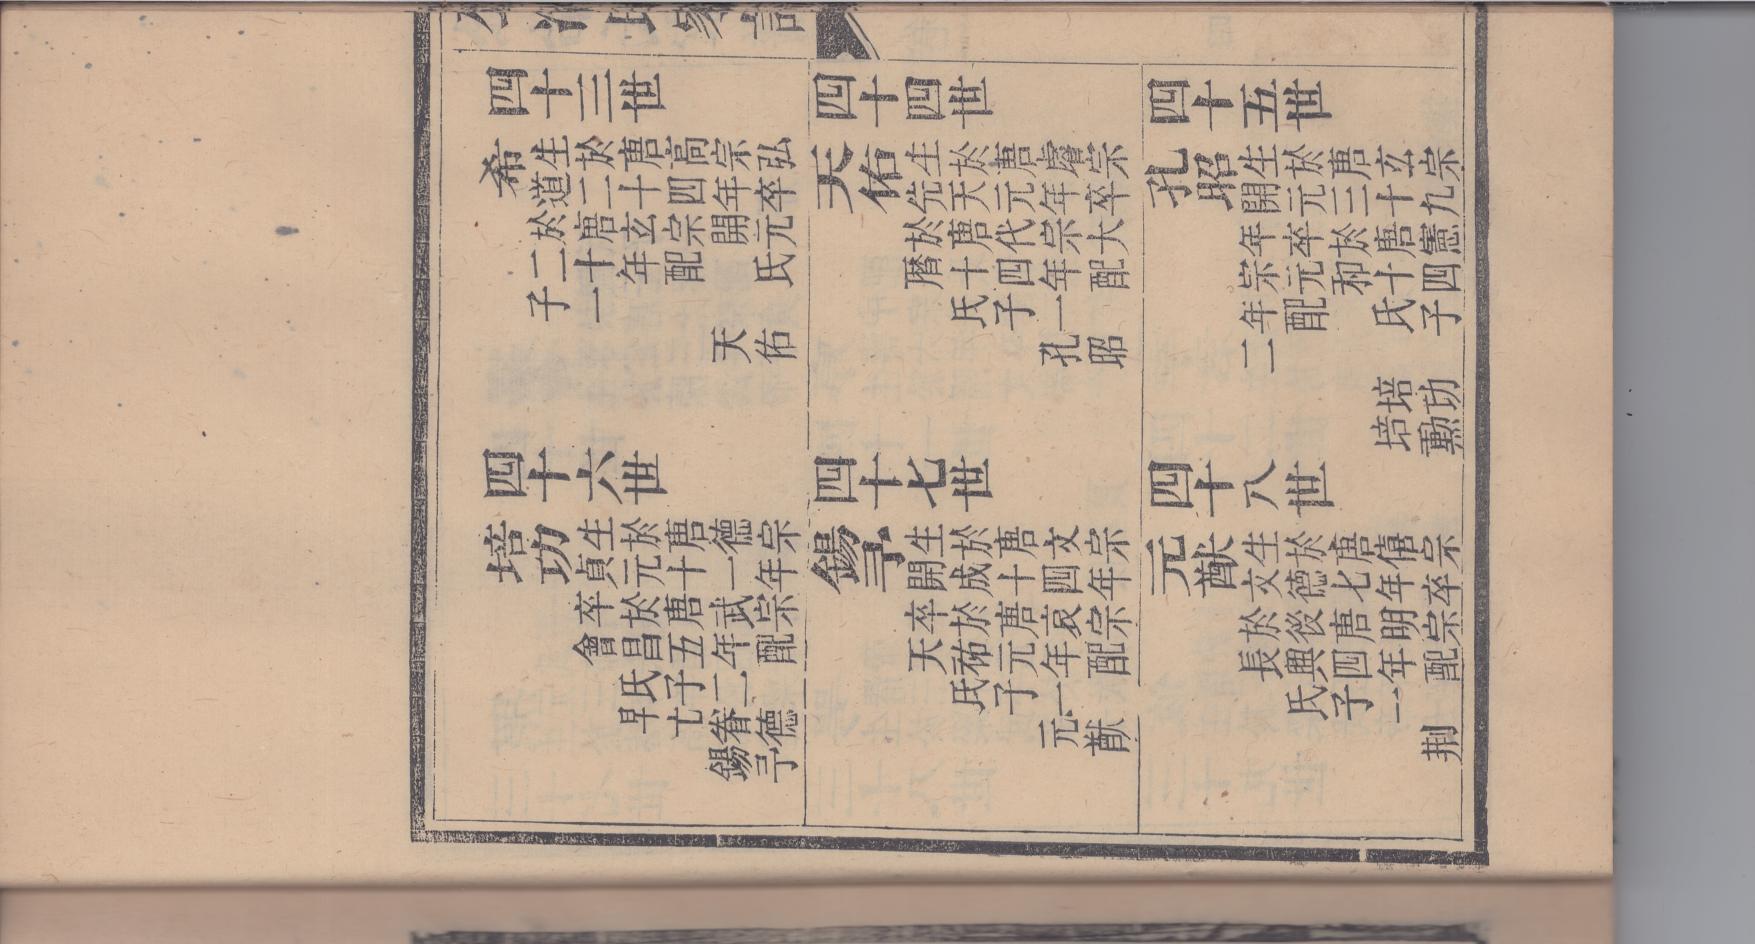 四十三世
希道生於唐高宗弘
道二十四年卒
於唐玄宗開元
二十年配 氏
子一
天佑
四十六世
培功
生於唐德宗
貞元十一年
卒於唐武宗
會昌五年配
氏子二
早亡眷德
錫弓
四十四世
天佑
生於唐睿宗
先天元年卒
於唐代宗大
曆十四年配
氏子一
孔昭
四十七世
錫弓
生於唐文宗
開成十四年
卒於唐哀宗
天祐元年配
氏子一
元猷
四十五世
孔昭
生於唐玄宗
開元三十九
年卒於唐憲
宗元和十四
年配 氏子
二
培功
培勳
四十八世
元猷
生於唐僖宗
文德七年卒
於後唐明宗
長興四年配
氏子一
荆